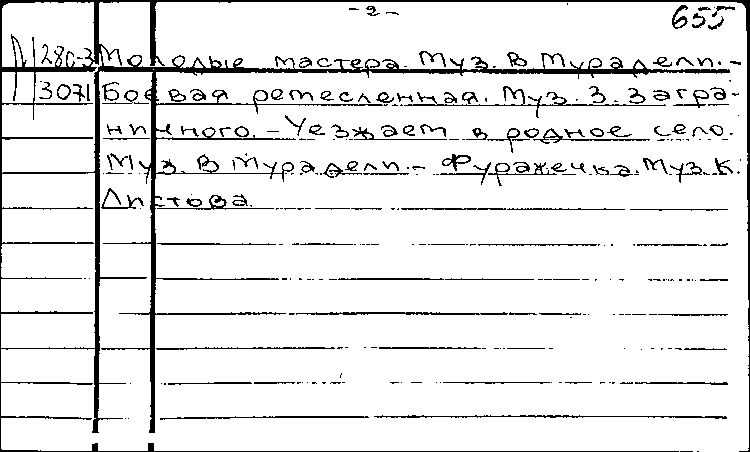 - 2 -
655
М 280-3 Молодые мастера. Муз. В Мурадели. -
3071 Боевая ремесленная. Муз. З. Загра-
ничного. - Уезжает в родное село.
Муз. В Мурадели. - Фуражечка. Муз. К.
Листова